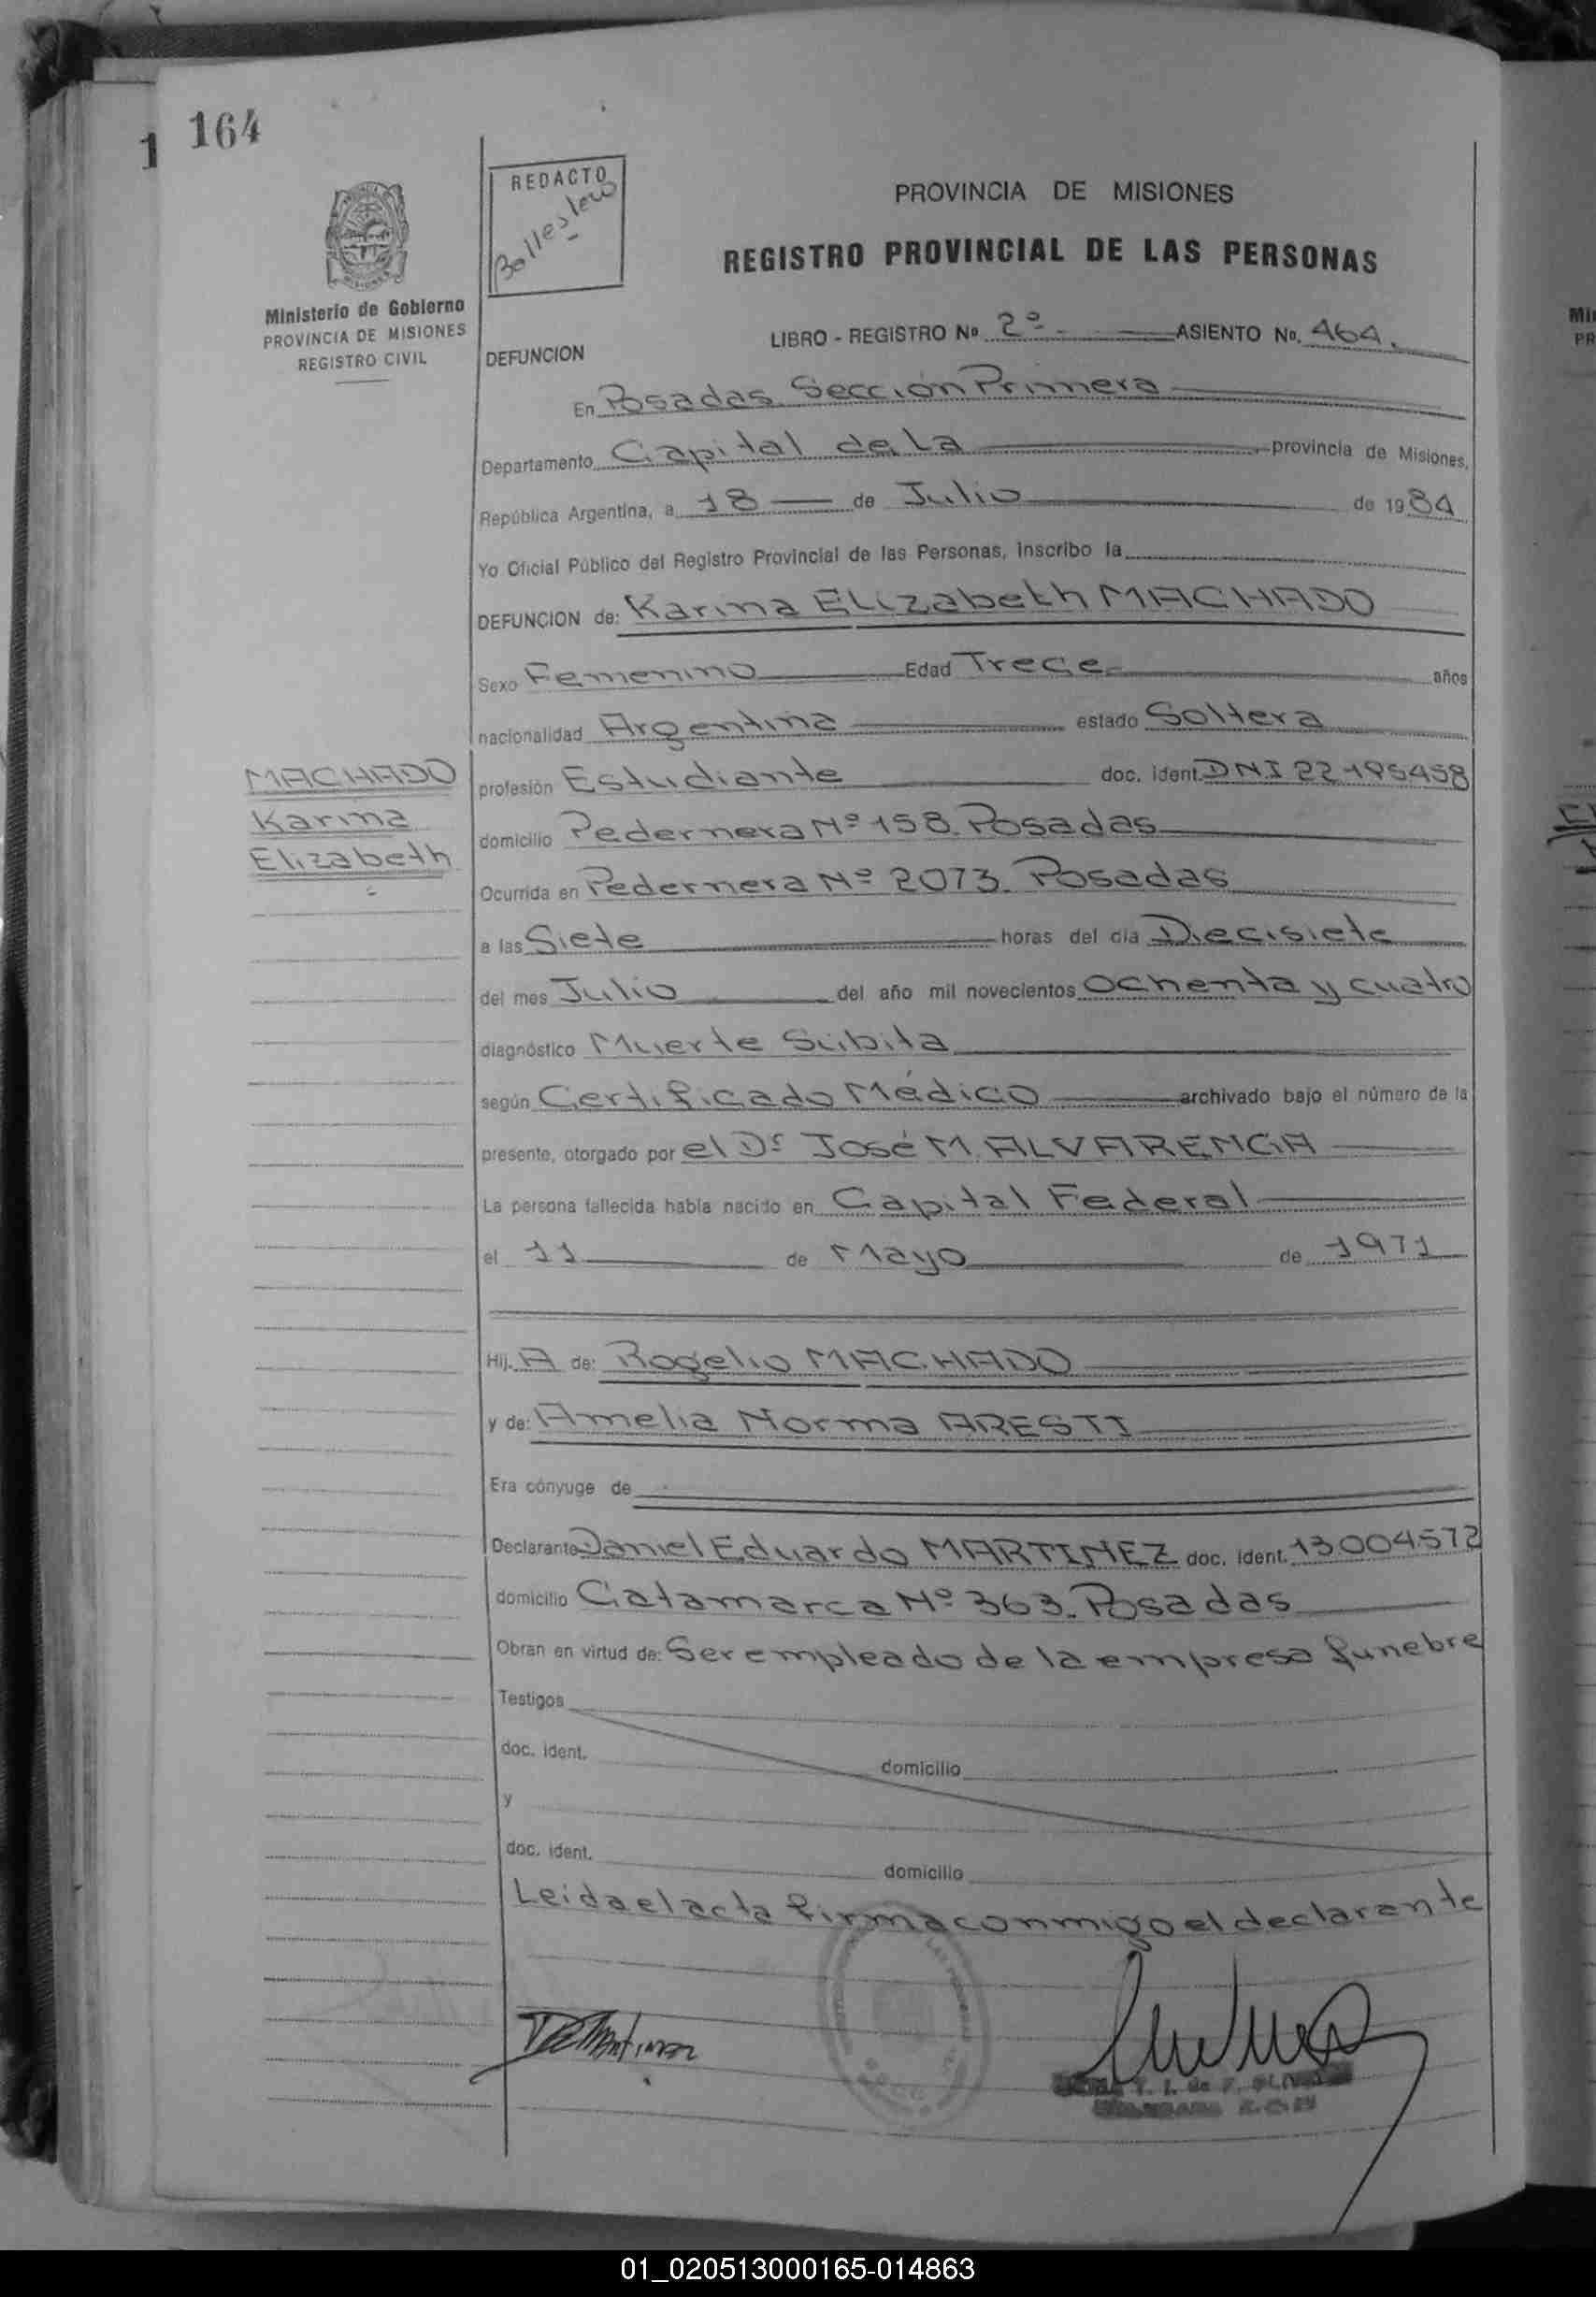 164
1
REDACTO
Ballestero
Ministerio de Gobierno
PROVINCIA DE MISIONES
REGISTRO CIVIL
PROVINCIA DE MISIONES
REGISTRO PROVINCIAL DE LAS PERSONAS
LIBRO - REGISTRO Nº 2º ASIENTO No. 464.
DEFUNCION
En Posadas Sección Primera
Departamento Capital de la provincia de Misiones,
República Argentina, a 18 de Julio de 1984
Yo Oficial Público del Registro Provincial de las Personas, inscribo la
DEFUNCION de: Karina Elizabeth MACHADO
Sexo Femenino Edad Trece años
nacionalidad Argentina estado Soltera
MACHADO
Karina
Elizabeth
profesión Estudiante doc. ident. DNI 22195458
domicilio Pedernera Nº 158. Posadas
Ocurrida en Pedernera Nº 2073. Posadas
a las Siete horas del día Diecisiete
del mes Julio del año mil novecientos Ochenta y cuatro
diagnóstico Muerte Súbita
según Certificado Médico archivado bajo el número de la
presente, otorgado por el Dr José M. ALVARENGA
La persona fallecida había nacido en Capital Federal
el 11 de Mayo de 1971
Hij A de: Rogelio MACHADO
y de: Amelia Norma ARESTI
Era cónyuge de
Declarante Daniel Eduardo MARTINEZ doc. ident. 13004572
domicilio Catamarca Nº 363. Posadas
Obran en virtud de: Ser empleado de la empresa funebre
Testigos
doc. ident. domicilio
y
doc. ident. domicilio
Leida el acta firma conmigo el declarante
DEMartinez
01_020513000165-014863